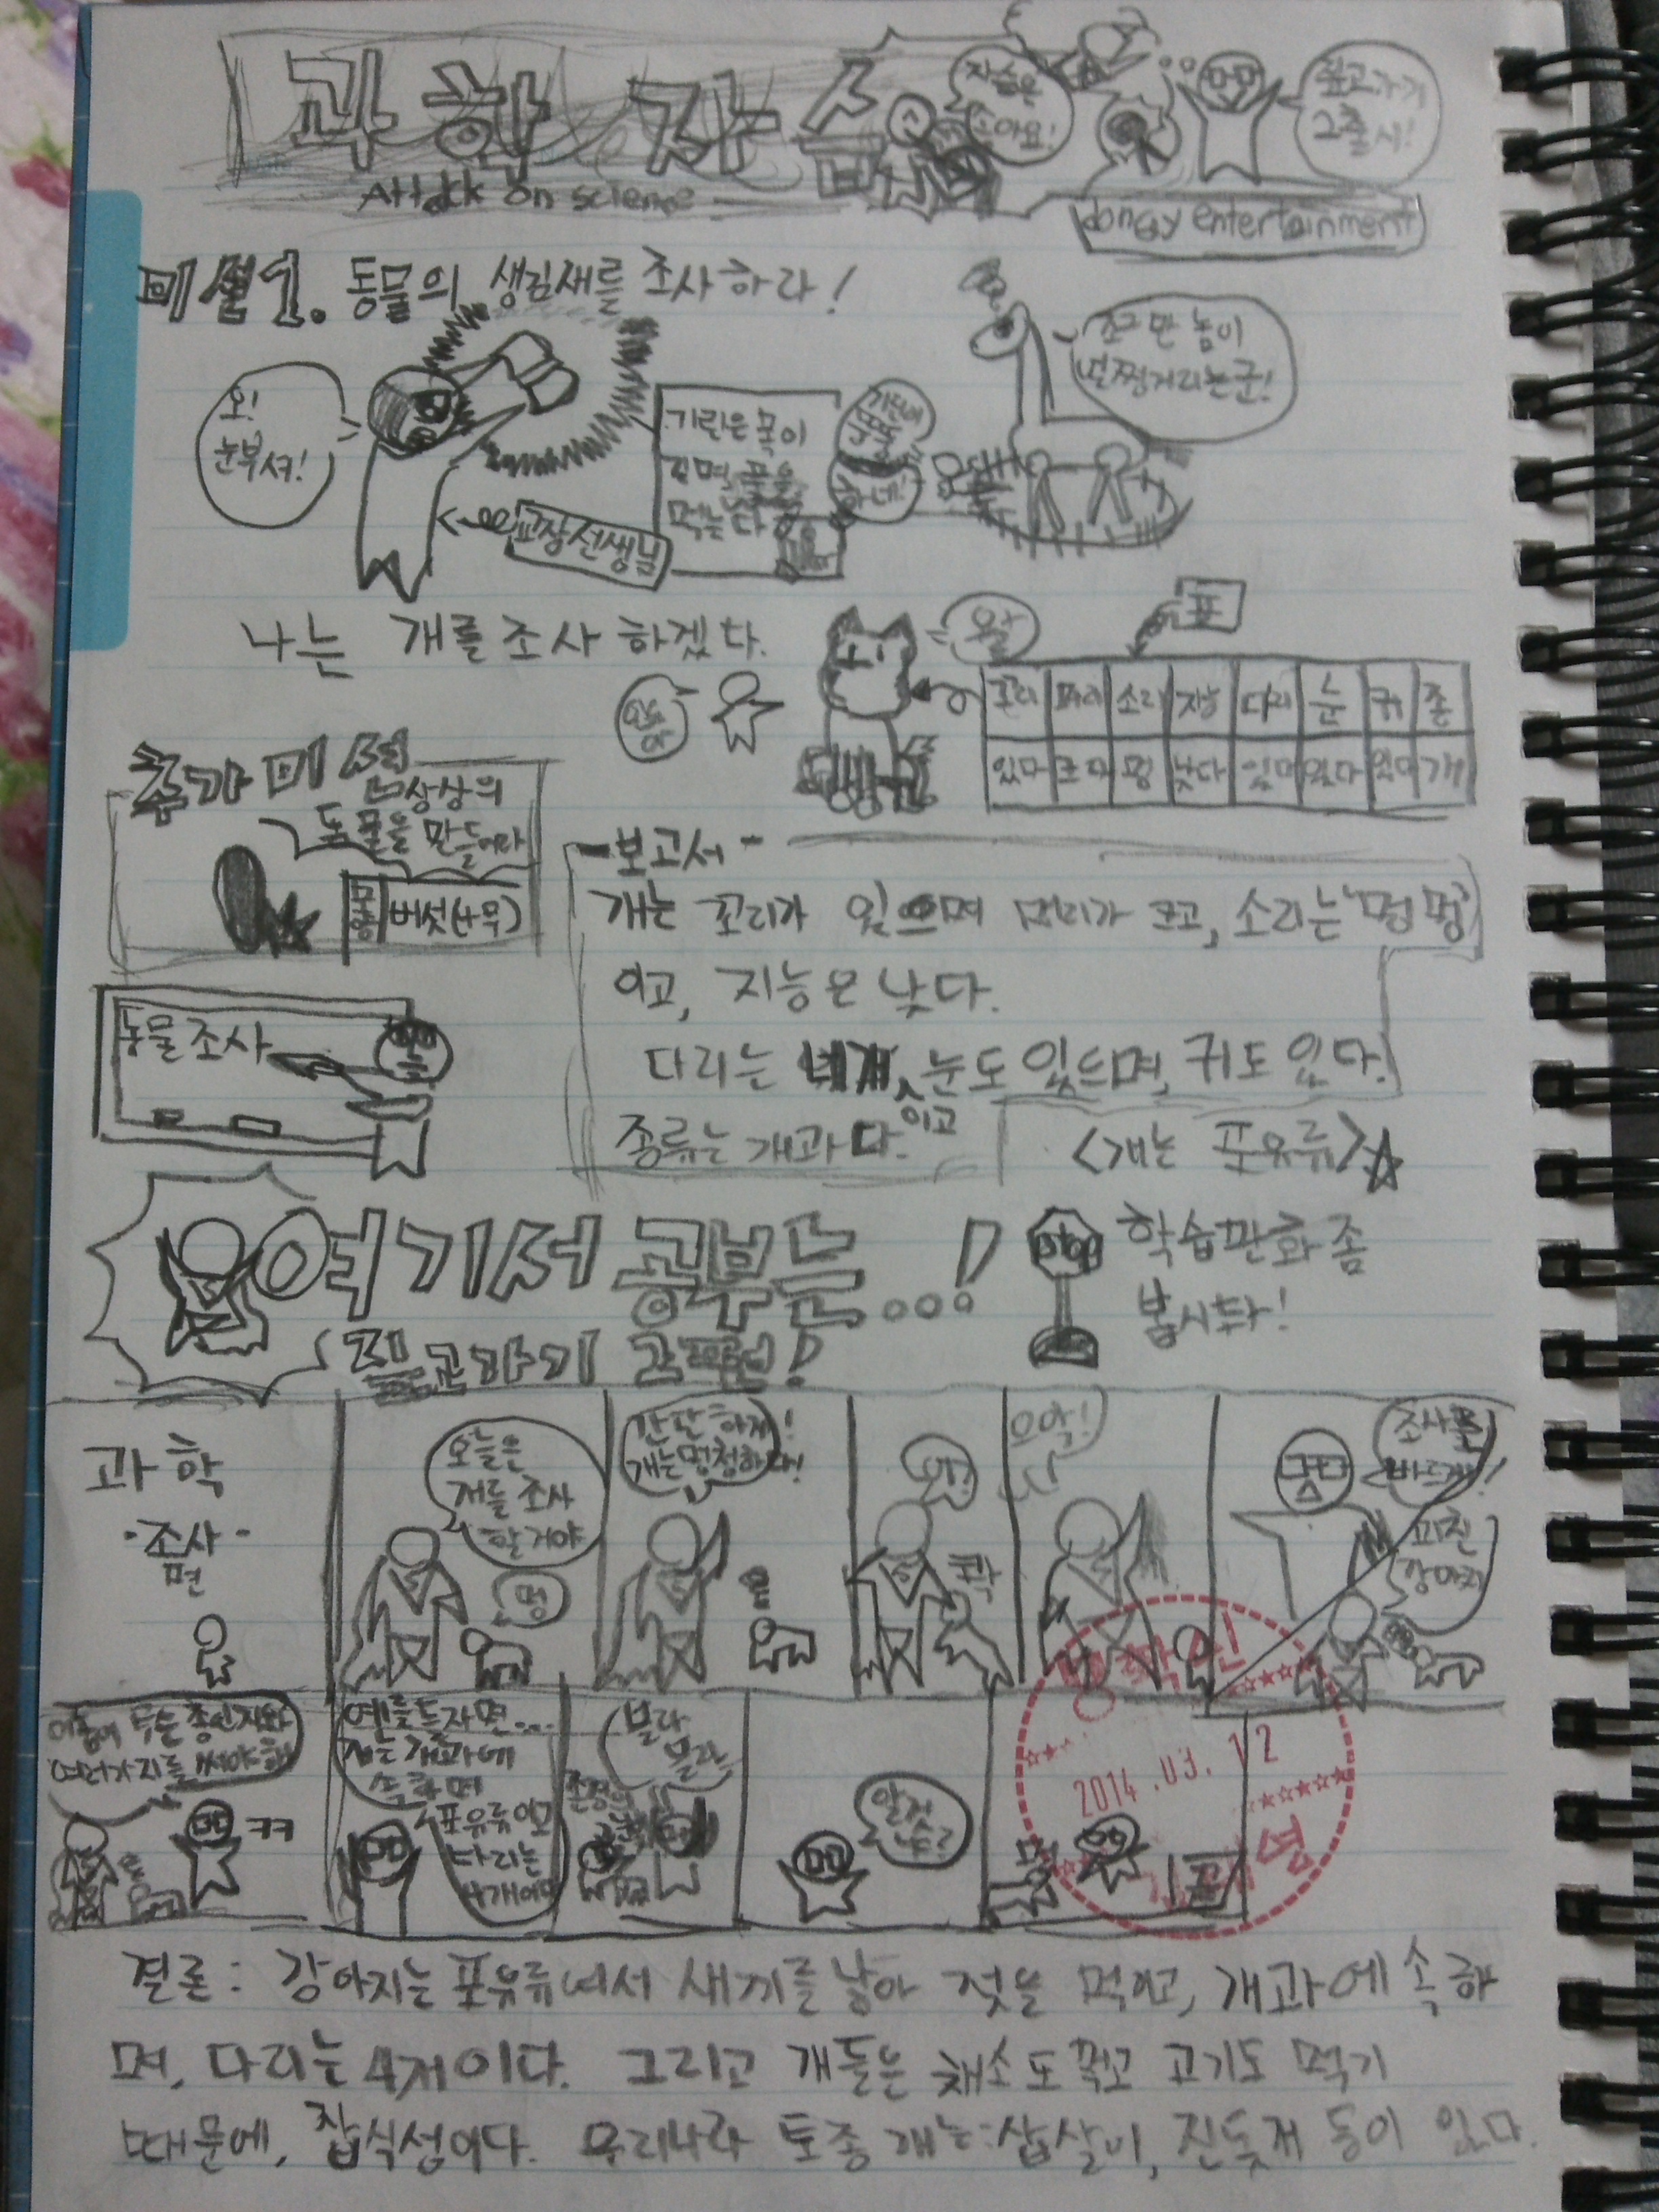 과학 자습
Attack on science
자습은
좋아요!
dongy entertainment
미션1. 동물의 생김새를 조사하라!
오!
눈부셔!
교장선생님
기린은 목이
길며 풀을
먹는다
조그만 놈이
얼쩡거리는군!
나는 개를 조사 하겠다.
왈
표
꼬리 머리 소리 지능 다리 눈 귀 종
있다 크다 멍 낮다 있다 있다 있다 개
추가미션
상상의
동물을 만들어라
버섯(나무)
동물조사
-보고서-
개는 꼬리가 있으며 머리가 크고, 소리는 '멍멍'
이고, 지능은 낮다.
다리는 네개이고, 눈도 있으며, 귀도 있다.
종류는 개과다.
<개는 포유류>☆
여기서 공부는...!
stop
학습만화 좀
봅시다!
과학
·조사·
편
오늘은
개를 조사
할거야
멍
간단하지!
개는 멍청하다!
콱
으악!
미친
강아지
예를들자면...
개는 개과에
속하며
포유류이고
다리는
4개이다
ㅋㅋ
블라
블라
알겠
나?
끝
2014.03.12
결론: 강아지는 포유류여서 새끼를 낳아 젖을 먹이고, 개과에 속하
며, 다리는 4개이다. 그리고 개들은 채소도 먹고 고기도 먹기
때문에, 잡식성이다. 우리나라 토종 개는: 삽살이, 진돗개 등이 있다.